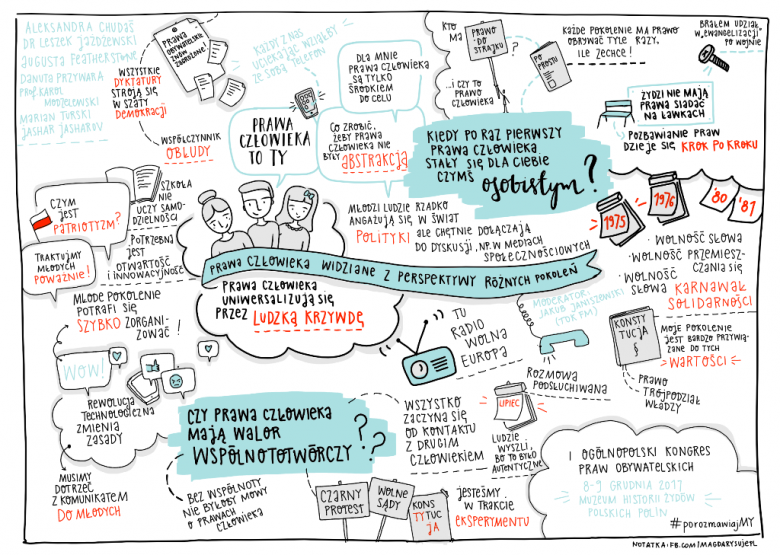 ALEKSANDRA CHUDAŚ
DR LESZEK JAŻDŻEWSKI
AUGUSTA FEATHERSTONE
DANUTA PRZYWARA
PROF. KAROL
MODZELEWSKI
MARIAN TURSKI
JASHAR JASHAROV
PRAWA
OBYWATELSKIE
ZNÓW
ZDOBYTE!
WSZYSTKIE
DYKTATURY
STROJĄ SIĘ
W SZATY
DEMOKRACJI
WSPÓŁCZYNNIK
OBŁUDY
KAŻDY Z NAS
UCIEKAJĄC WZIĄŁBY
ZE SOBĄ TELEFON
PRAWA
CZŁOWIEKA
TO TY
DLA MNIE
PRAWA CZŁOWIEKA
SĄ TYLKO
ŚRODKIEM
DO CELU
CO ZROBIĆ,
ŻEBY PRAWA
CZŁOWIEKA NIE
BYŁY ABSTRAKCJĄ
KTO
MA
PRAWO
DO
STRAJKU
?
...I CZY TO
PRAWO
CZŁOWIEKA
PO
PROSTU
KAŻDE POKOLENIE MA PRAWO
OBRYWAĆ TYLE RAZY,
ILE ZECHCE!
BRAŁEM UDZIAŁ
W „EWANGELIZACJI”
PO WOJNIE
ŻYDZI NIE MAJĄ
PRAWA SIADAĆ
NA ŁAWKACH
POZBAWIANIE PRAW
DZIEJE SIĘ KROK PO KROKU
KIEDY PO RAZ PIERWSZY
PRAWA CZŁOWIEKA
STAŁY SIĘ DLA CIEBIE
CZYMŚ
OSOBISTYM?
1975
1976
'80
'81
WOLNOŚĆ SŁOWA
WOLNOŚĆ PRZEMIESZ-
CZANIA SIĘ
WOLNOŚĆ
SŁOWA KARNAWAŁ
SOLIDARNOŚCI
CZYM
JEST
PATRIOTYZM?
SZKOŁA
NIE
UCZY SAMO-
DZIELNOŚCI
TRAKTUJMY
MŁODYCH
POWAŻNIE!
POTRZEBNA
JEST
OTWARTOŚĆ
I INNOWACYJNOŚĆ
MŁODE POKOLENIE
POTRAFI SIĘ
SZYBKO ZORGANI-
ZOWAĆ!
MŁODZI LUDZIE RZADKO
ANGAŻUJĄ SIĘ W ŚWIAT
POLITYKI ALE CHĘTNIE DOŁĄCZAJĄ
DO DYSKUSJI, NP. W MEDIACH
SPOŁECZNOŚCIOWYCH
PRAWA CZŁOWIEKA WIDZIANE Z PERSPEKTYWY RÓŻNYCH POKOLEŃ
PRAWA CZŁOWIEKA
UNIWERSALIZUJĄ SIĘ
PRZEZ LUDZKĄ KRZYWDĘ
TU
RADIO
WOLNA
EUROPA
MODERATOR:
JAKUB JANISZEWSKI
(TOK FM)
ROZMOWA
PODSŁUCHIWANA
KONSTY
TUCJA
§
MOJE POKOLENIE
JEST BARDZO PRZYWIĄ-
ZANE DO TYCH
WARTOŚCI
PRAWO
TRÓJPODZIAŁ
WŁADZY
WOW!
REWOLUCJA
TECHNOLOGICZNA
ZMIENIA
ZASADY
MUSIMY
DOTRZEĆ
Z KOMUNIKATEM
DO MŁODYCH
CZY PRAWA CZŁOWIEKA
MAJĄ WALOR
WSPÓLNOTOTWÓRCZY??
BEZ WSPÓLNOTY
NIE BYŁOBY MOWY
O PRAWACH
CZŁOWIEKA
WSZYSTKO
ZACZYNA SIĘ
OD KONTAKTU
Z DRUGIM
CZŁOWIEKIEM
LIPIEC
LUDZIE
WYSZLI,
BO TO BYŁO
AUTENTYCZNE
CZARNY
PROTEST
WOLNE
SĄDY
KONS
TYTUC
JA
JESTEŚMY
W TRAKCIE
EKSPERYMENTU
I OGÓLNOPOLSKI KONGRES
PRAW OBYWATELSKICH
8-9 GRUDNIA 2017
MUZEUM HISTORII ŻYDÓW
POLSKICH POLIN
#POROZMAWIAJMY
NOTATKA: FB.COM/MAGDARYSUJEPL